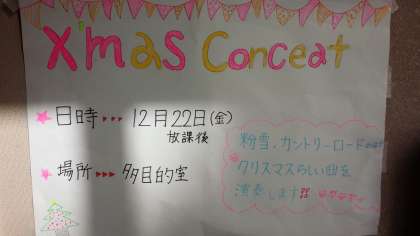 X'mas Conceat
★日時・・・12月22日(金)
放課後
★場所・・・多目的室
粉雪、カントリーロード
クリスマスらしい曲を
演奏します!!